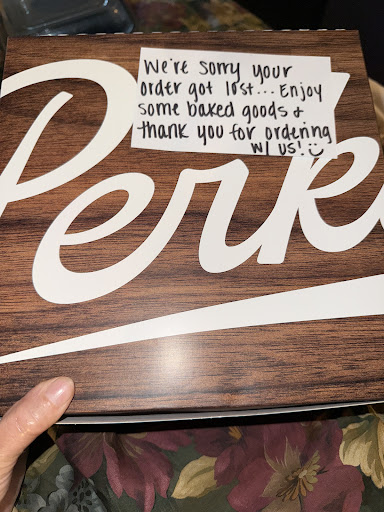 We're sorry your
order got lost... Enjoy
some baked goods &
thank you for ordering
w/ us! :)
Perk